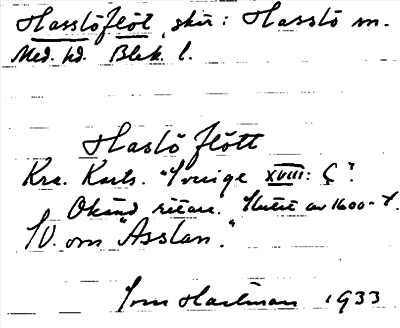 Hasslöflöt, skär: Hasslö sn.
Med. hd. Blek. l.
Haslö flött
Kra. Karls. "Sverige XVIII: 5".
Okänd ritare. Slutet av 1600-t.
SV. om "Asslan."
Jöran Hartman 1933